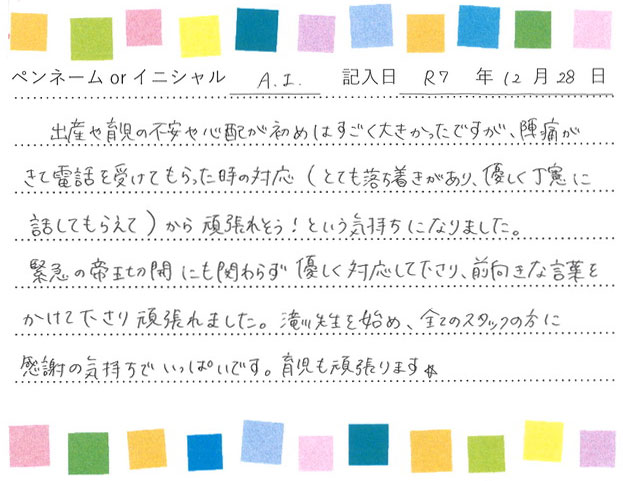 ペンネーム or イニシャル A.I. 記入日 R7 年 12 月 28 日
出産や育児の不安や心配が初めはすごく大きかったですが、陣痛が
きて電話を受けてもらった時の対応(とても落ち着きがあり、優しく丁寧に
話してもらえて)から頑張れそう!という気持ちになりました。
緊急の帝王切開にも関わらず優しく対応して下さり、前向きな言葉を
かけて下さり頑張れました。滝川先生を始め、全てのスタッフの方に
感謝の気持ちでいっぱいです。育児も頑張ります☆